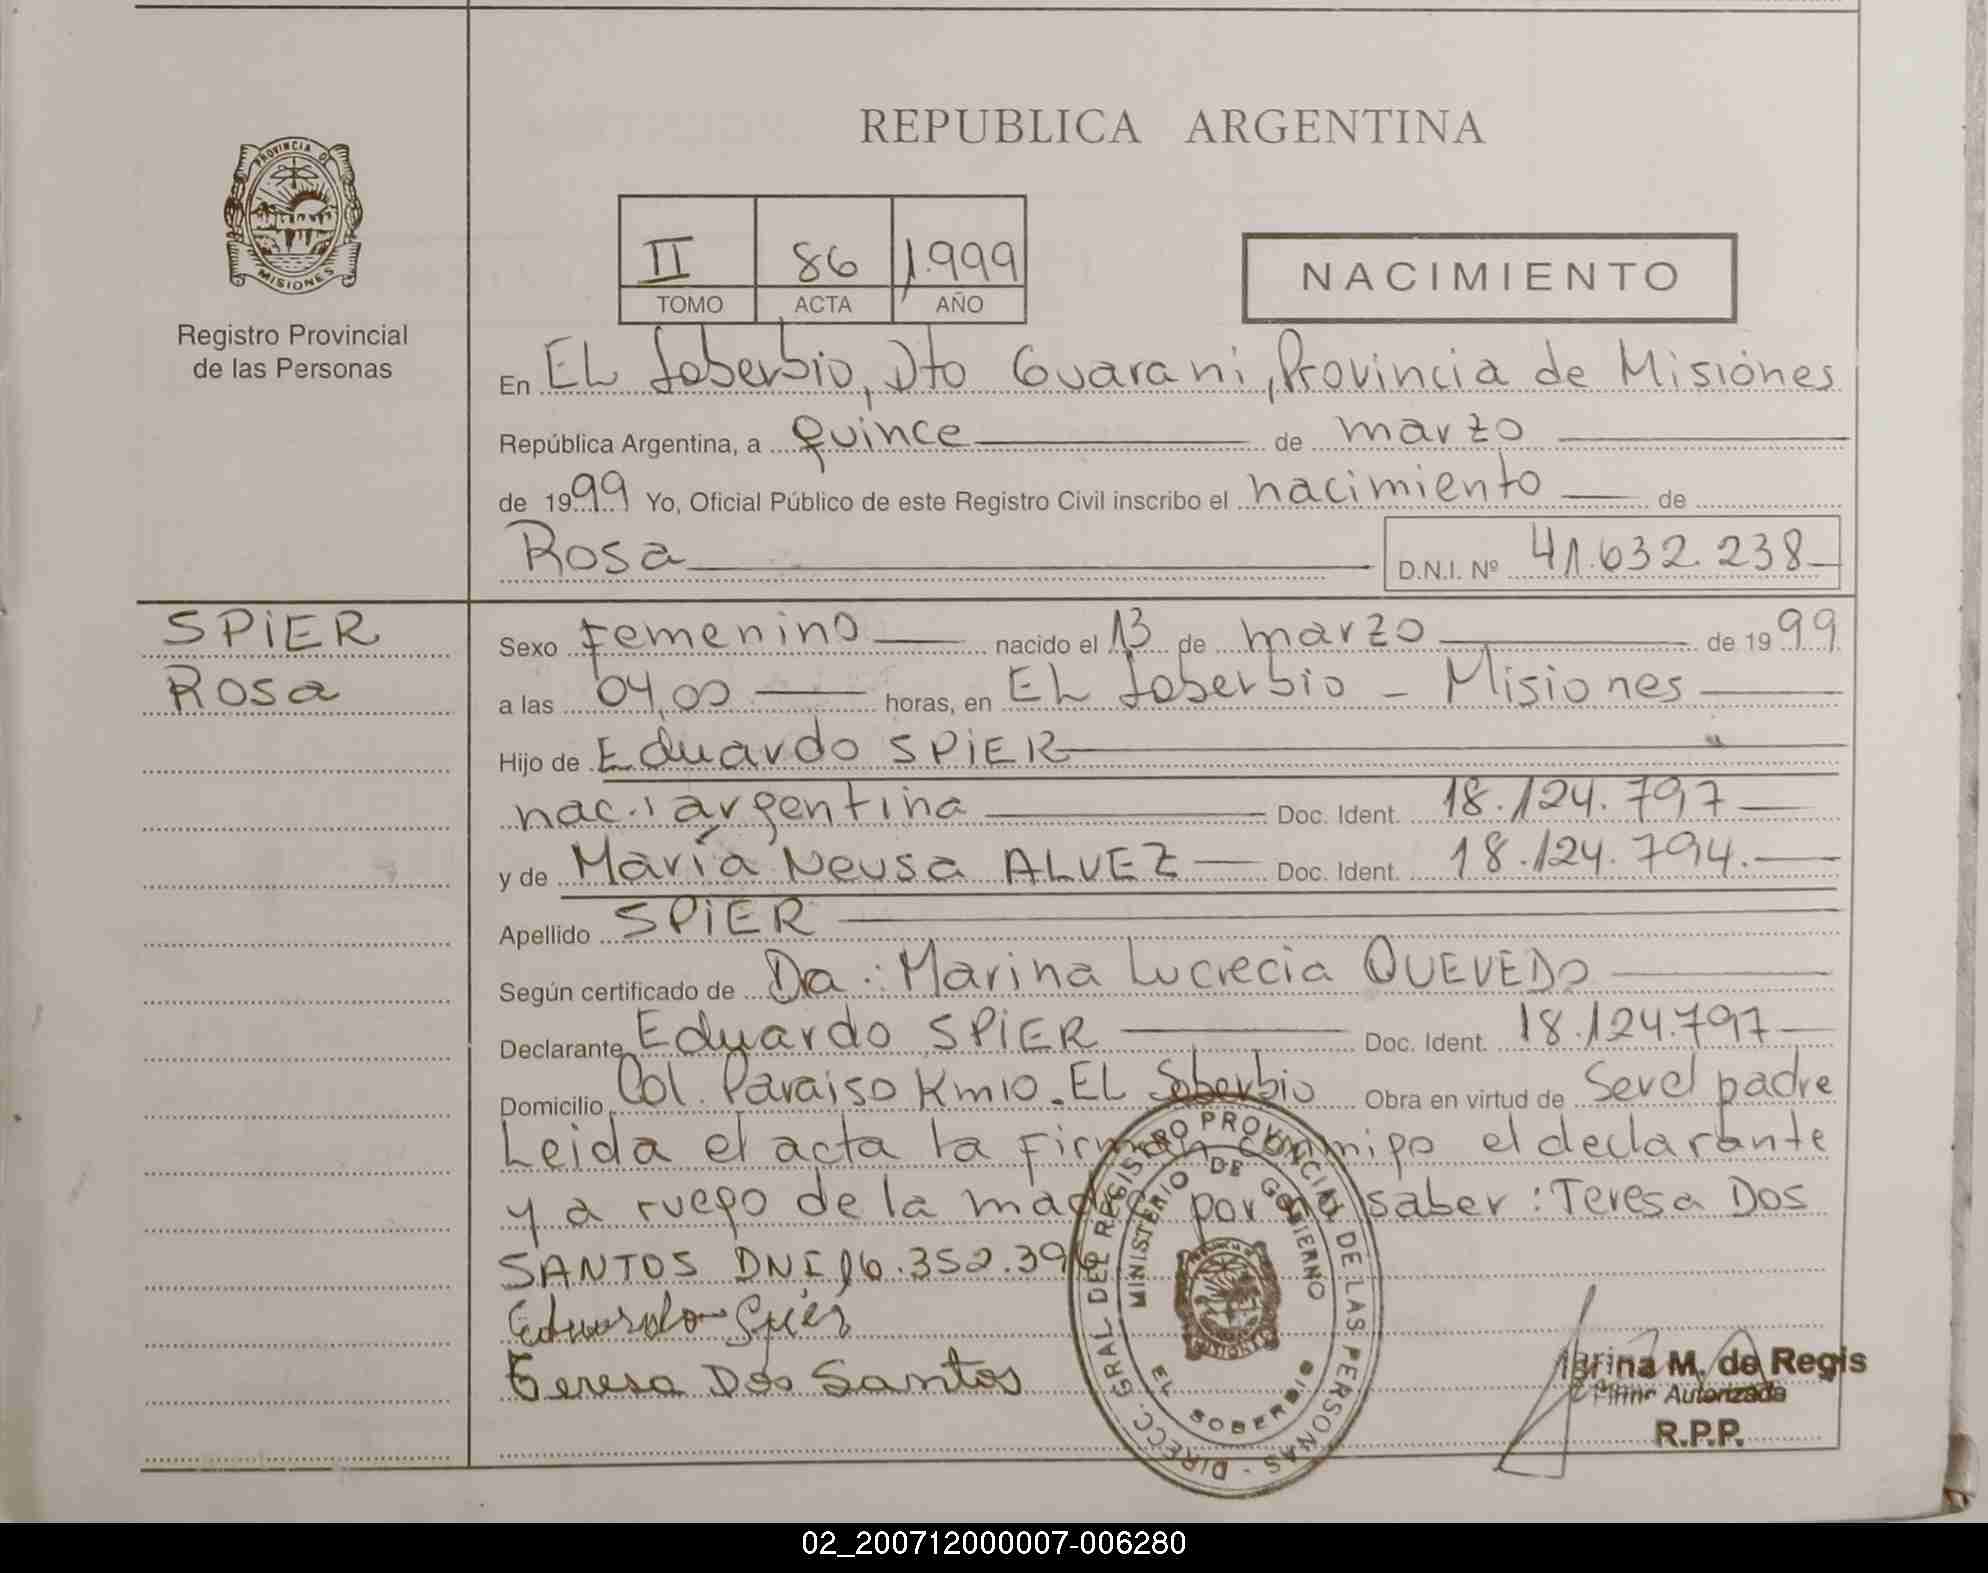 REPUBLICA ARGENTINA
PROVINCIA DE
MISIONES
Registro Provincial
de las Personas
II 86 1.999
TOMO ACTA AÑO
NACIMIENTO
En EL Soberbio, Dto Guarani, Provincia de Misiones
República Argentina, a quince de marzo
de 1999 Yo, Oficial Público de este Registro Civil inscribo el nacimiento de
Rosa D.N.I. Nº 41.632.238
SPiER
Rosa
Sexo Femenino nacido el 13 de marzo de 1999
a las 04,00 horas, en EL Soberbio - Misiones
Hijo de Eduardo SPiER
nac.: argentina Doc. Ident. 18.124.797
y de María Neusa ALVEZ Doc. Ident. 18.124.794.
Apellido SPiER
Según certificado de Da.: Marina Lucrecia QUEVEDO
Declarante Eduardo SPiER Doc. Ident. 18.124.797
Domicilio Col. Paraiso Km10. EL Soberbio Obra en virtud de Serel padre
Leida el acta la Firman conmigo el declarante
y a ruego de la madre por no saber: Teresa Dos
SANTOS DNI 16.352.396
Eduardo Spier
Teresa Dos Santos
DIRECC. GRAL DEL REGISTRO PROVINCIAL DE LAS PERSONAS -
MINISTERIO DE GOBIERNO
EL SOBERBIO
M. de Regis
Autorizada
R.P.P.
02_200712000007-006280